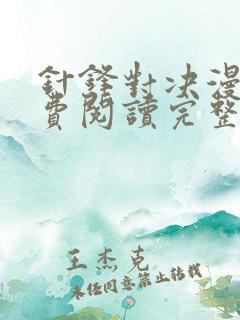 針鋒對决漫
費閱讀完整
王杰克
未经同意禁止转载